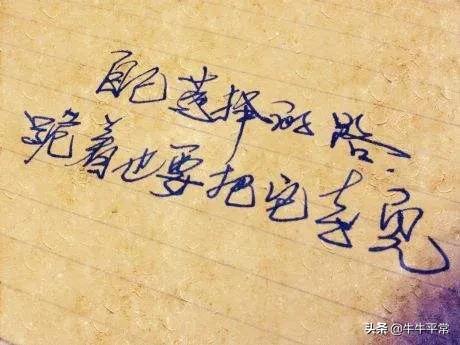 自己选择的路、
跪着也要把它走完
头条 @牛牛平常